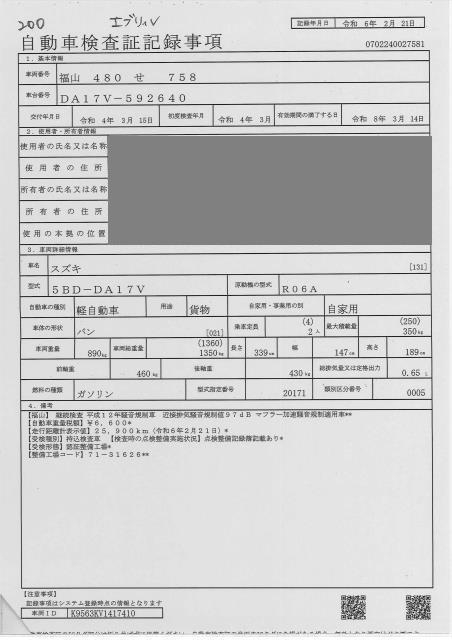 200 エブリィV
記録年月日 令和 6年 2月 21日
自動車検査証記録事項 0702240027581
1．基本情報
車両番号 福山 480 せ 758
車台番号 DA17V－592640
交付年月日 令和 4年 3月 15日 初度検査年月 令和 4年 3月 有効期間の満了する日 令和 8年 3月 14日
2．使用者・所有者情報
使用者の氏名又は名称
使用者の住所
所有者の氏名又は名称
所有者の住所
使用の本拠の位置
3．車両詳細情報
車名 スズキ [131]
型式 5BD－DA17V 原動機の型式 R06A
自動車の種別 軽自動車 用途 貨物 自家用・事業用の別 自家用
車体の形状 バン [021] 乗車定員 (4) 2人 最大積載量 (250) 350kg
車両重量 890kg 車両総重量 (1360) 1350kg 長さ 339cm 幅 147cm 高さ 189cm
前軸重 460kg 後軸重 430kg 総排気量又は定格出力 0.65 L
燃料の種類 ガソリン 型式指定番号 20171 類別区分番号 0005
4．備考
【福山】 継続検査 平成12年騒音規制車 近接排気騒音規制値97dB マフラー加速騒音規制適用車**
【自動車重量税額】￥6，600*
【走行距離計表示値】25，900km（令和6年2月21日）*
【受検種別】持込検査車 【検査時の点検整備実施状況】点検整備記録簿記載あり*
【受検形態】認証整備工場*
【整備工場コード】71－31626**
【注意事項】
記録事項はシステム登録時点の情報となります
車両ID K9563KV1417410